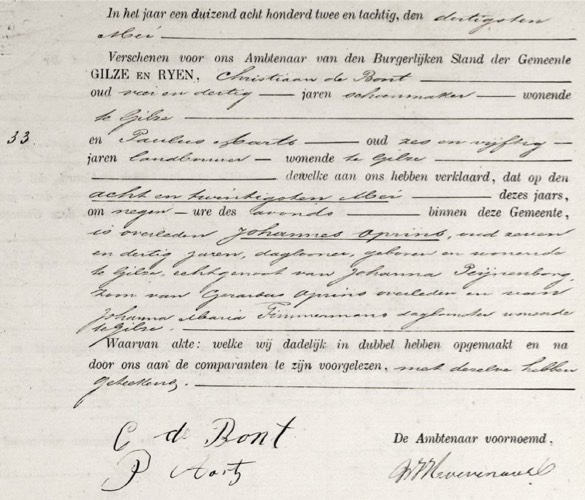 In het jaar een duizend acht honderd twee en tachtig, den dertigsten
Mei
Verschenen voor ons Ambtenaar van den Burgerlijken Stand der Gemeente
GILZE EN RYEN, Christiaan de Bont
oud en dertig — jaren schoenmaker — wonende
te Gilze
33.
en Paulus Aarts — oud zes en vijftig —
jaren landbouwer — wonende te Gilze
dewelke aan ons hebben verklaard, dat op den
acht en twintigsten Mei — dezes jaars,
om negen — ure des avonds — binnen deze Gemeente,
is overleden Johannes Oprins, oud zeven
en dertig jaren, daglooner, geboren en wonende
te Gilze, echtgenoot van Johanna Peijnenborg,
zoon van Gerardus Oprins overleden en van
Johanna Maria Timmermans daglonster wonende
te Gilze.
Waarvan akte: welke wij dadelijk in dubbel hebben opgemaakt en na
door ons aan de comparanten te zijn voorgelezen, met dezelve hebben
geteekend,
C de Bont
De Ambtenaar voornoemd,
P Aarts